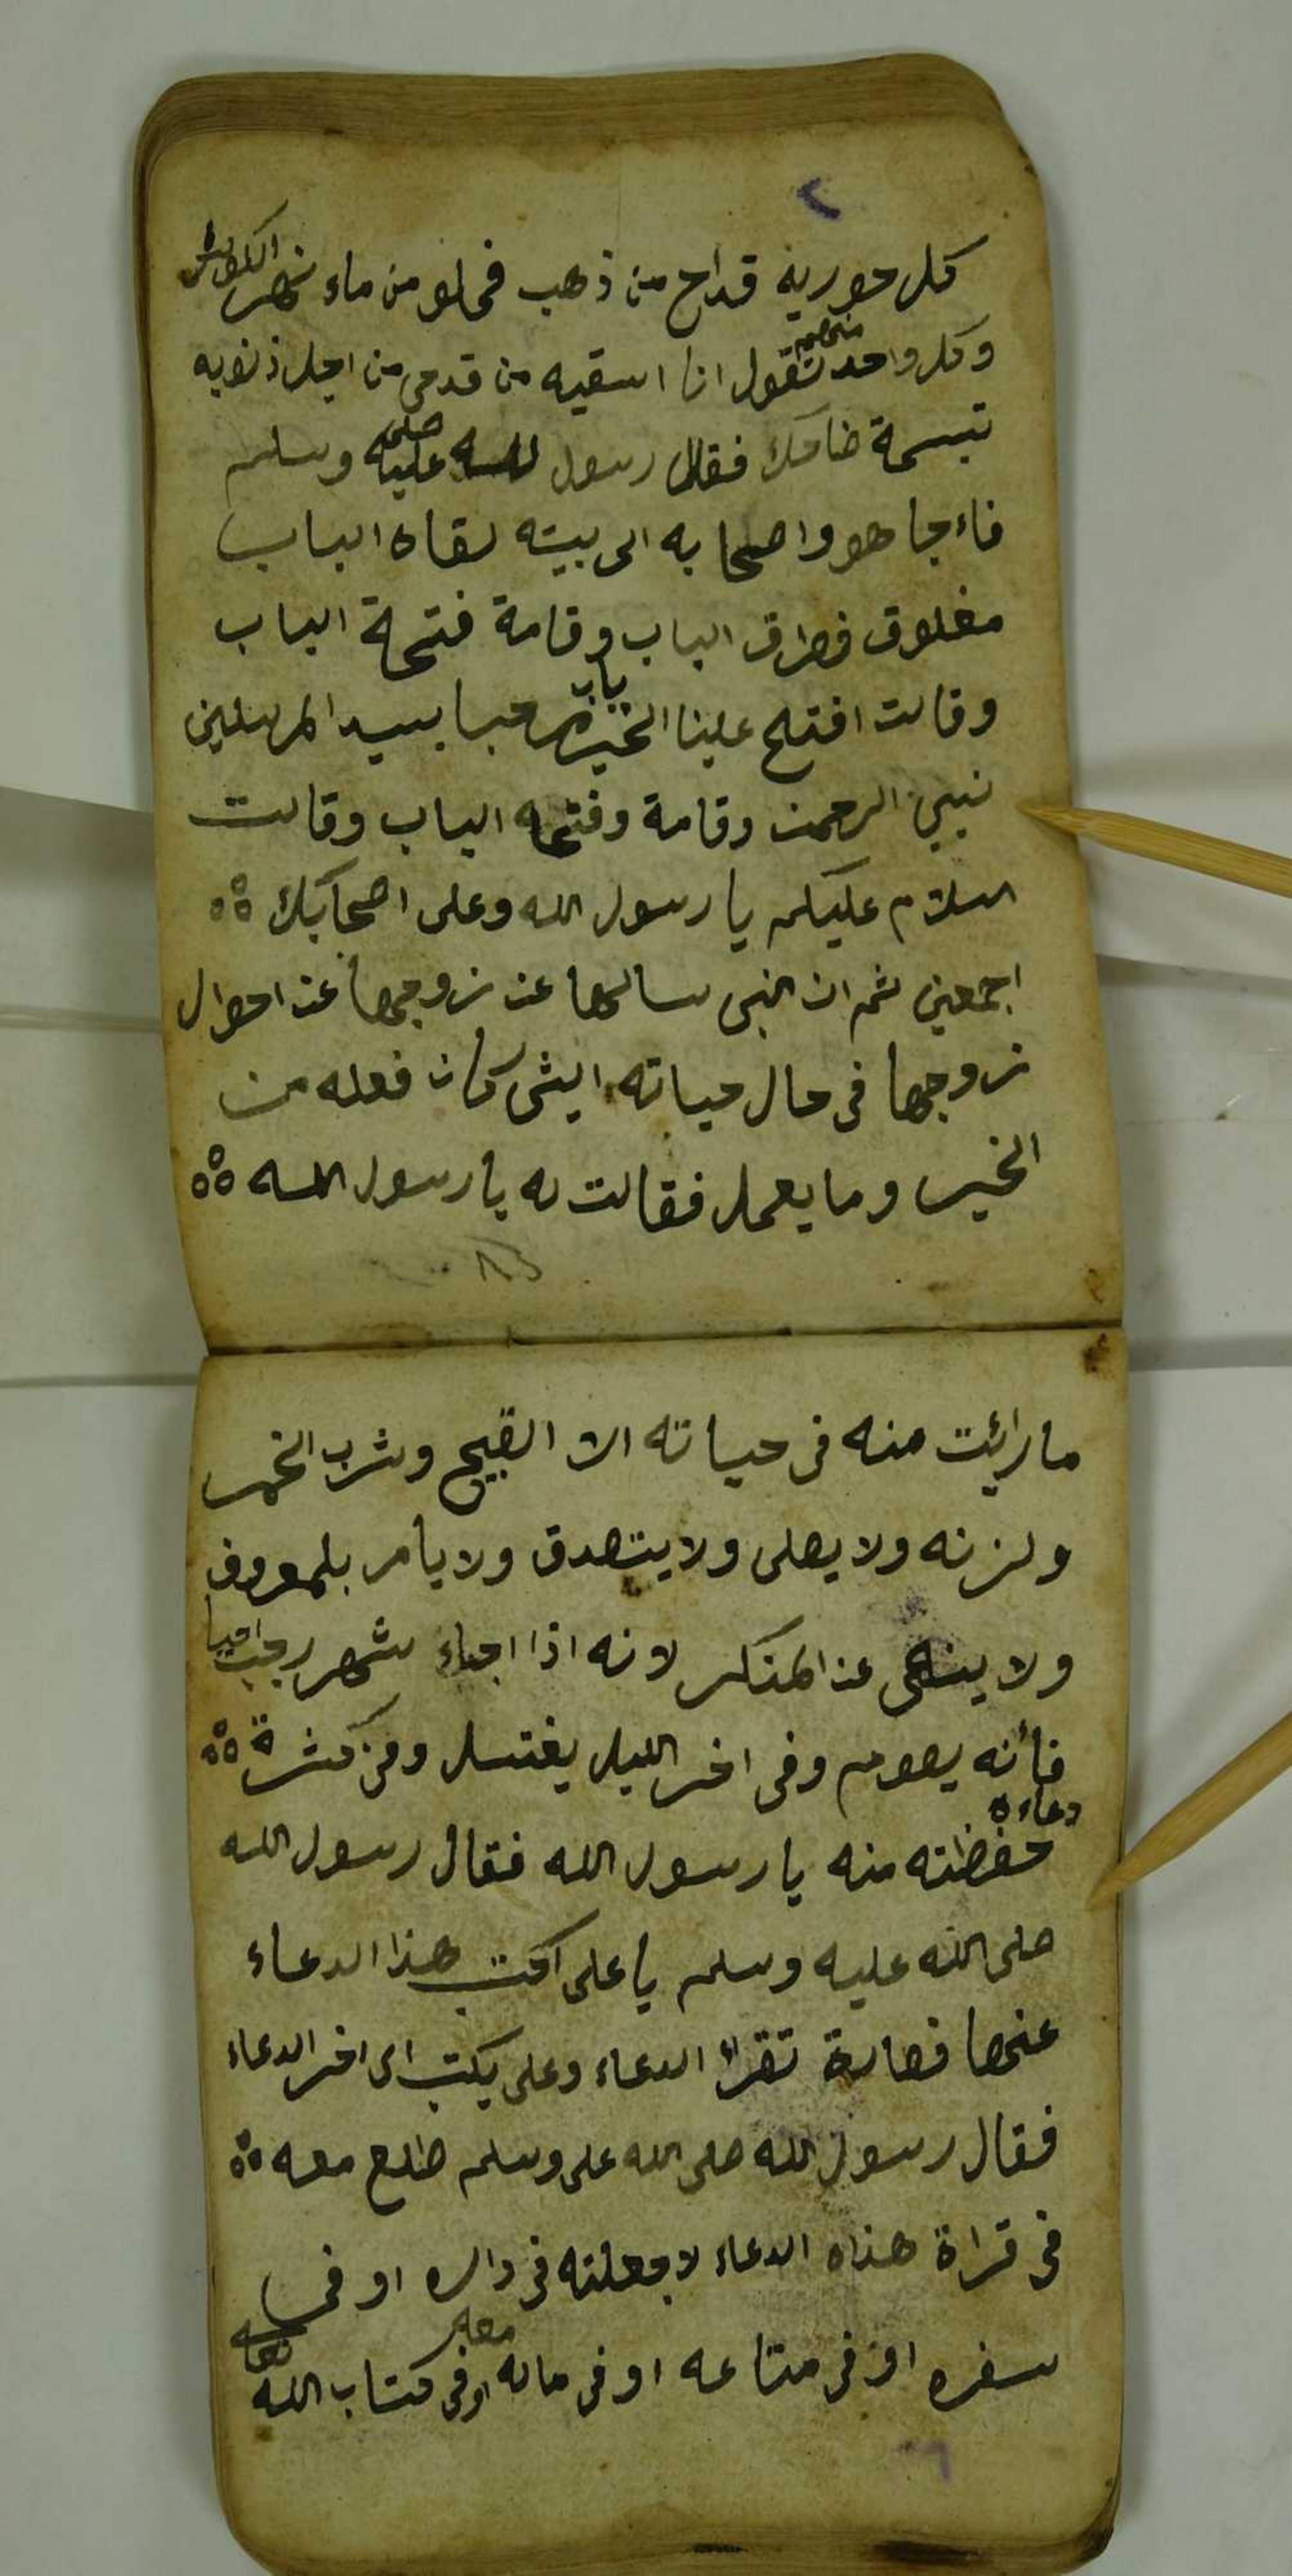 ٢
كل حوريه قداح من ذهب فملو من ماء نهر الكوثر
وكل واحد منهم تقول انا اسقيه من قدحي من اجل ذنوبه
تبسمة ضاحك فقال رسول الله صلى عليه وسلم
فاءجا هو واصحابه الى بيته لقاه الباب
مغلوق فطرق الباب وقامة فتحة الباب
وقالت افتح علينا الخير يارب مرحبا بسيد المرسلين
نبيي الرحمن وقامة وفتحه الباب وقالت
السلام عليكم يا رسول الله وعلى اصحابك
اجمعين ثم ان النبي سالها عن زوجها عن احوال
زوجها في حال حياته ايشى كان فعله من
الخير وما يعمل فقالت له يا رسول الله
ما رائت منه في حياته الا القبيح وشرب الخمر
ولزنه ولا يصلى ولا يتصدق ولا يامر بلمعروف
ولا ينهى عن المنكر لانه اذا اجاء شهر رجب
فأنه يصوم وفي اخر الليل يغتسل ومن كثرة
دعاءه
حفظته منه يا رسول الله فقال رسول الله
صلى الله عليه وسلم يا على اكتب هذا الدعاء
عنها فصارة تقراء الدعاء وعلى يكتب الى اخر الدعاء
فقال رسول الله صلى الله على وسلم طلع معه
في قراة هذاه الدعاء لا جعلته في داره او في
سفره او في متاعه او في ماله معه او في كتاب الله تعالى
٦